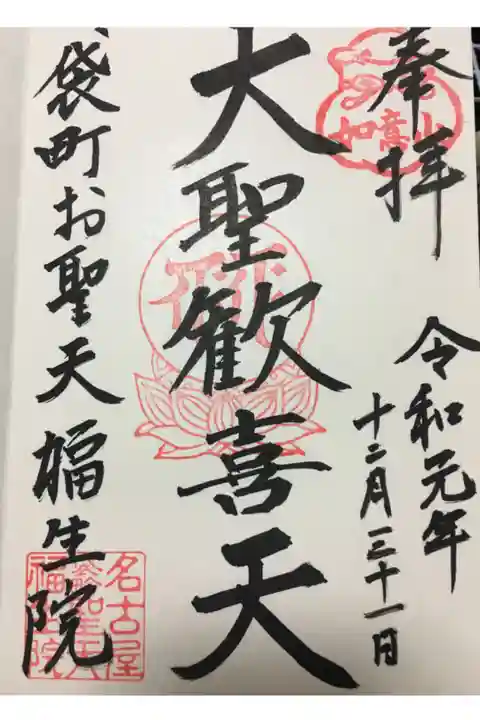 奉拝
如意山
令和元年
十二月三十一日
大聖歓喜天
袋町お聖天 福生院
名古屋
袋聖天
福生院